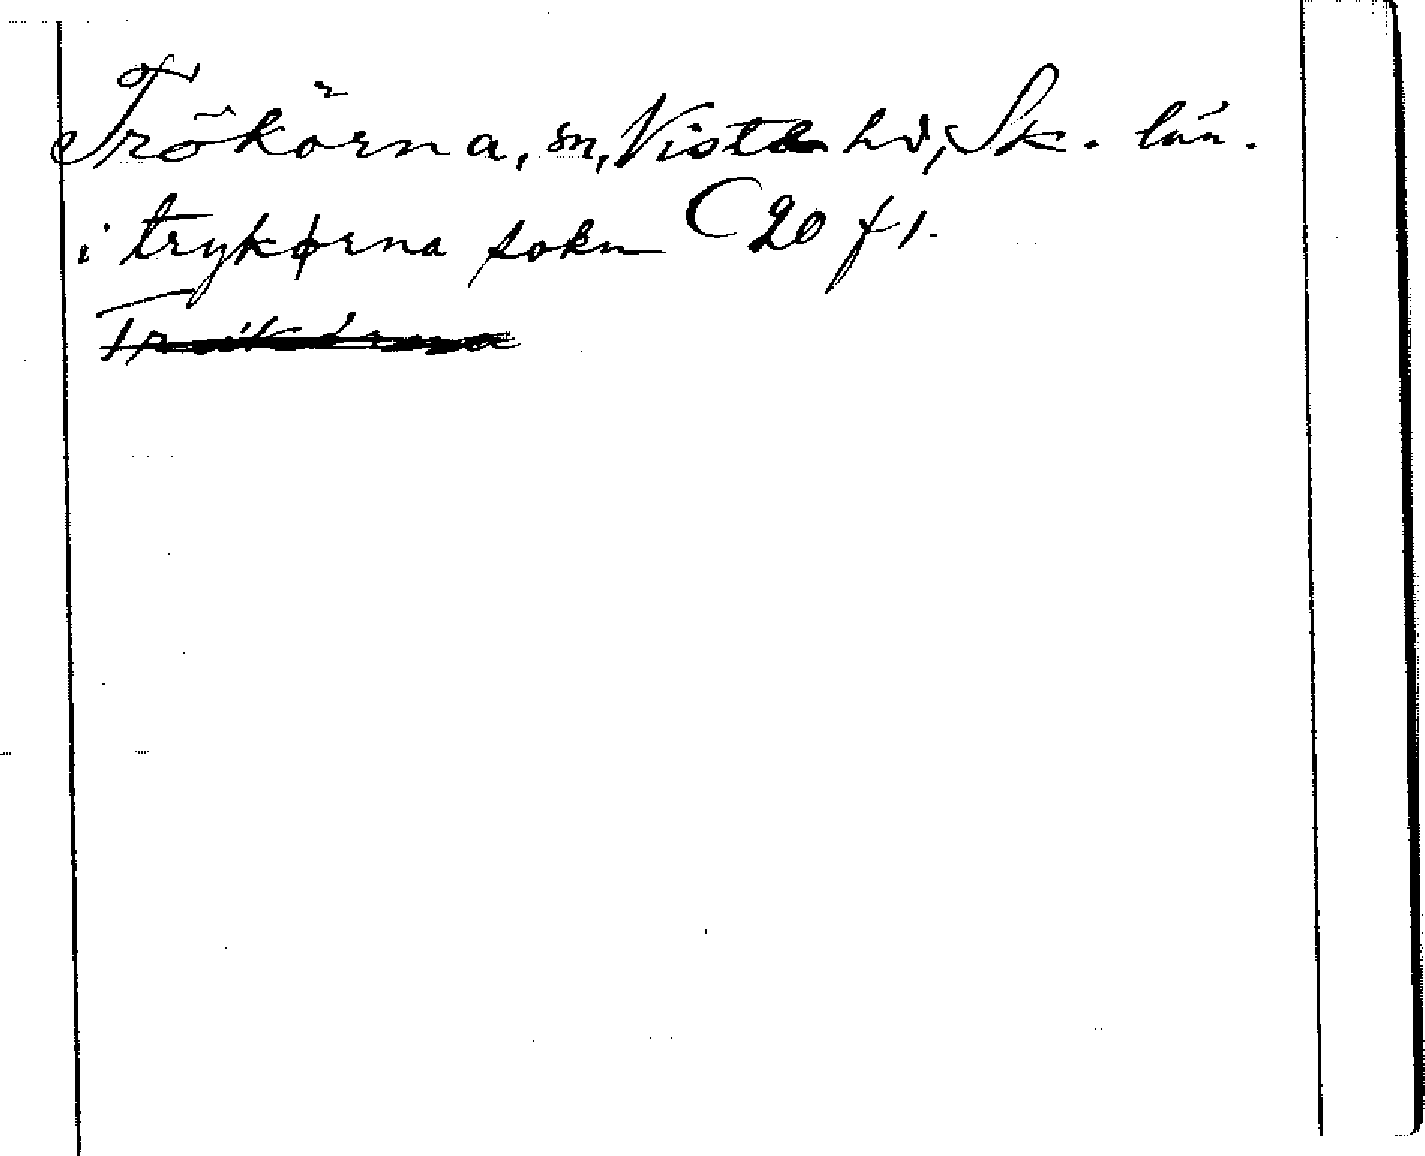 Trökörna, sn, Viste hd, Sk. län.
i trykørna sokn C 20 f 1.